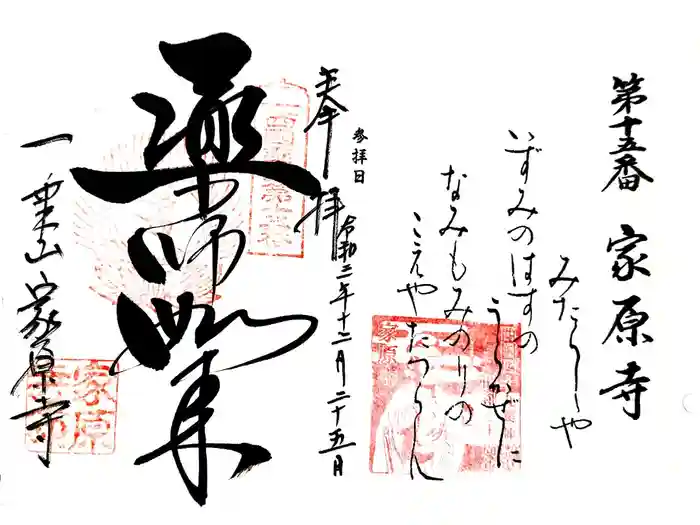 第十五番 家原寺
みたらしや
いずみのはすの
うらかぜに
なみもみのりの
こえやたつらん
奉拝
参拝日
令和三年十二月二十五日
薬師如来
一乗山 家原寺
家原